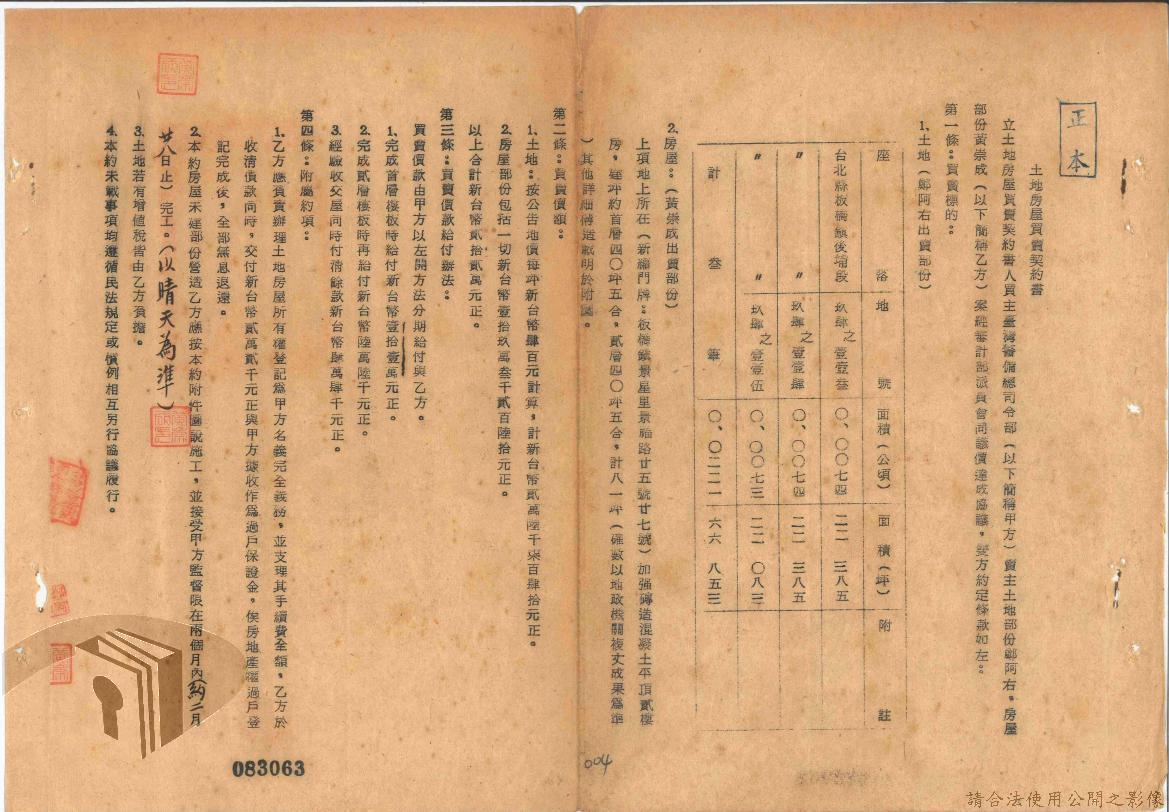 正本
土地房屋買賣契約書
立土地房屋買賣契約書人買主臺灣警備總司令部（以下簡稱甲方）賣主土地部份鄭阿右，房屋
部份黃崇成（以下簡稱乙方）案經審計部派員會同議價達成協議，雙方約定條款如左：
第一條：買賣標的：
1.土地（鄭阿右出賣部份）
座落 地號 面積（公頃） 面積（坪） 附註
台北縣板橋鎮後埔段 玖肆之壹壹叁 〇、〇〇七四 二二 三八五
〃 〃 玖肆之壹壹肆 〇、〇〇七四 二二 三八五
〃 〃 玖肆之壹壹伍 〇、〇〇七三 二二 〇八三
計 叁 筆 〇、〇二二一 六六 八五三
2.房屋：（黃崇成出賣部份）
上項地上所在（新編門牌：板橋鎮景星里景福路廿五號廿七號）加强磚造混凝土平頂貳樓
房，建坪約首層四〇坪五合，貳層四〇坪五合，計八一坪（確數以地政機關複丈成果為準
）其他詳細構造載明於附圖。
第二條：買賣價額：
1.土地：按公告地價每坪新台幣肆百元計算，計新台幣貳萬陸千柒百肆拾元正。
2.房屋部份包括一切新台幣壹拾玖萬叁千貳百陸拾元正。
以上合計新台幣貳拾貳萬元正。
第三條：買賣價款給付辦法：
買賣價款由甲方以左開方法分期給付與乙方。
1.完成首層樓板時給付新台幣壹拾壹萬元正。
2.完成貳層樓板時再給付新台幣陸萬陸千元正。
3.經驗收交屋同時付清餘款新台幣肆萬肆千元正。
第四條：附屬約項：
1.乙方應負責辦理土地房屋所有權登記為甲方名義完全義務，並支理其手續費全額，乙方於
收清價款同時，交付新台幣貳萬貳千元正與甲方據收作為過戶保證金。俟房地產權過戶登
記完成後，全部無息退還。
2.本約房屋未建部份營造乙方應按本約附件圖說施工，並接受甲方監督限在兩個月內（約二月
廿八日止）完工。（以晴天為準）
3.土地若有增值稅皆由乙方負擔。
4.本約未載事項均遵循民法規定或慣例相互另行協議履行。
083063
004
請合法使用公開之影像